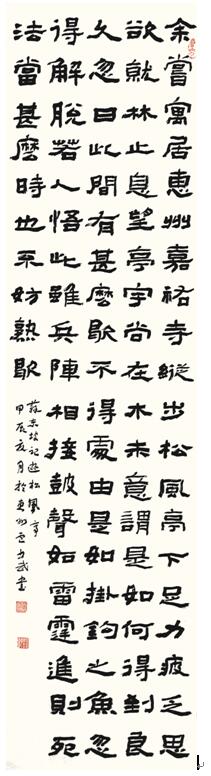 余嘗寓居惠州嘉祐寺縱步松風亭下足力疲乏思
欲就林止息望亭宇尚在木末意謂是如何得到良
久忽曰此間有甚麼歇不得處由是如掛鉤之魚忽
得解脫若人悟此雖兵陣相接鼓聲如雷霆進則死
法當甚麼時也不妨熟歇
蘇東坡記遊松風亭
甲辰夏月於惠州書